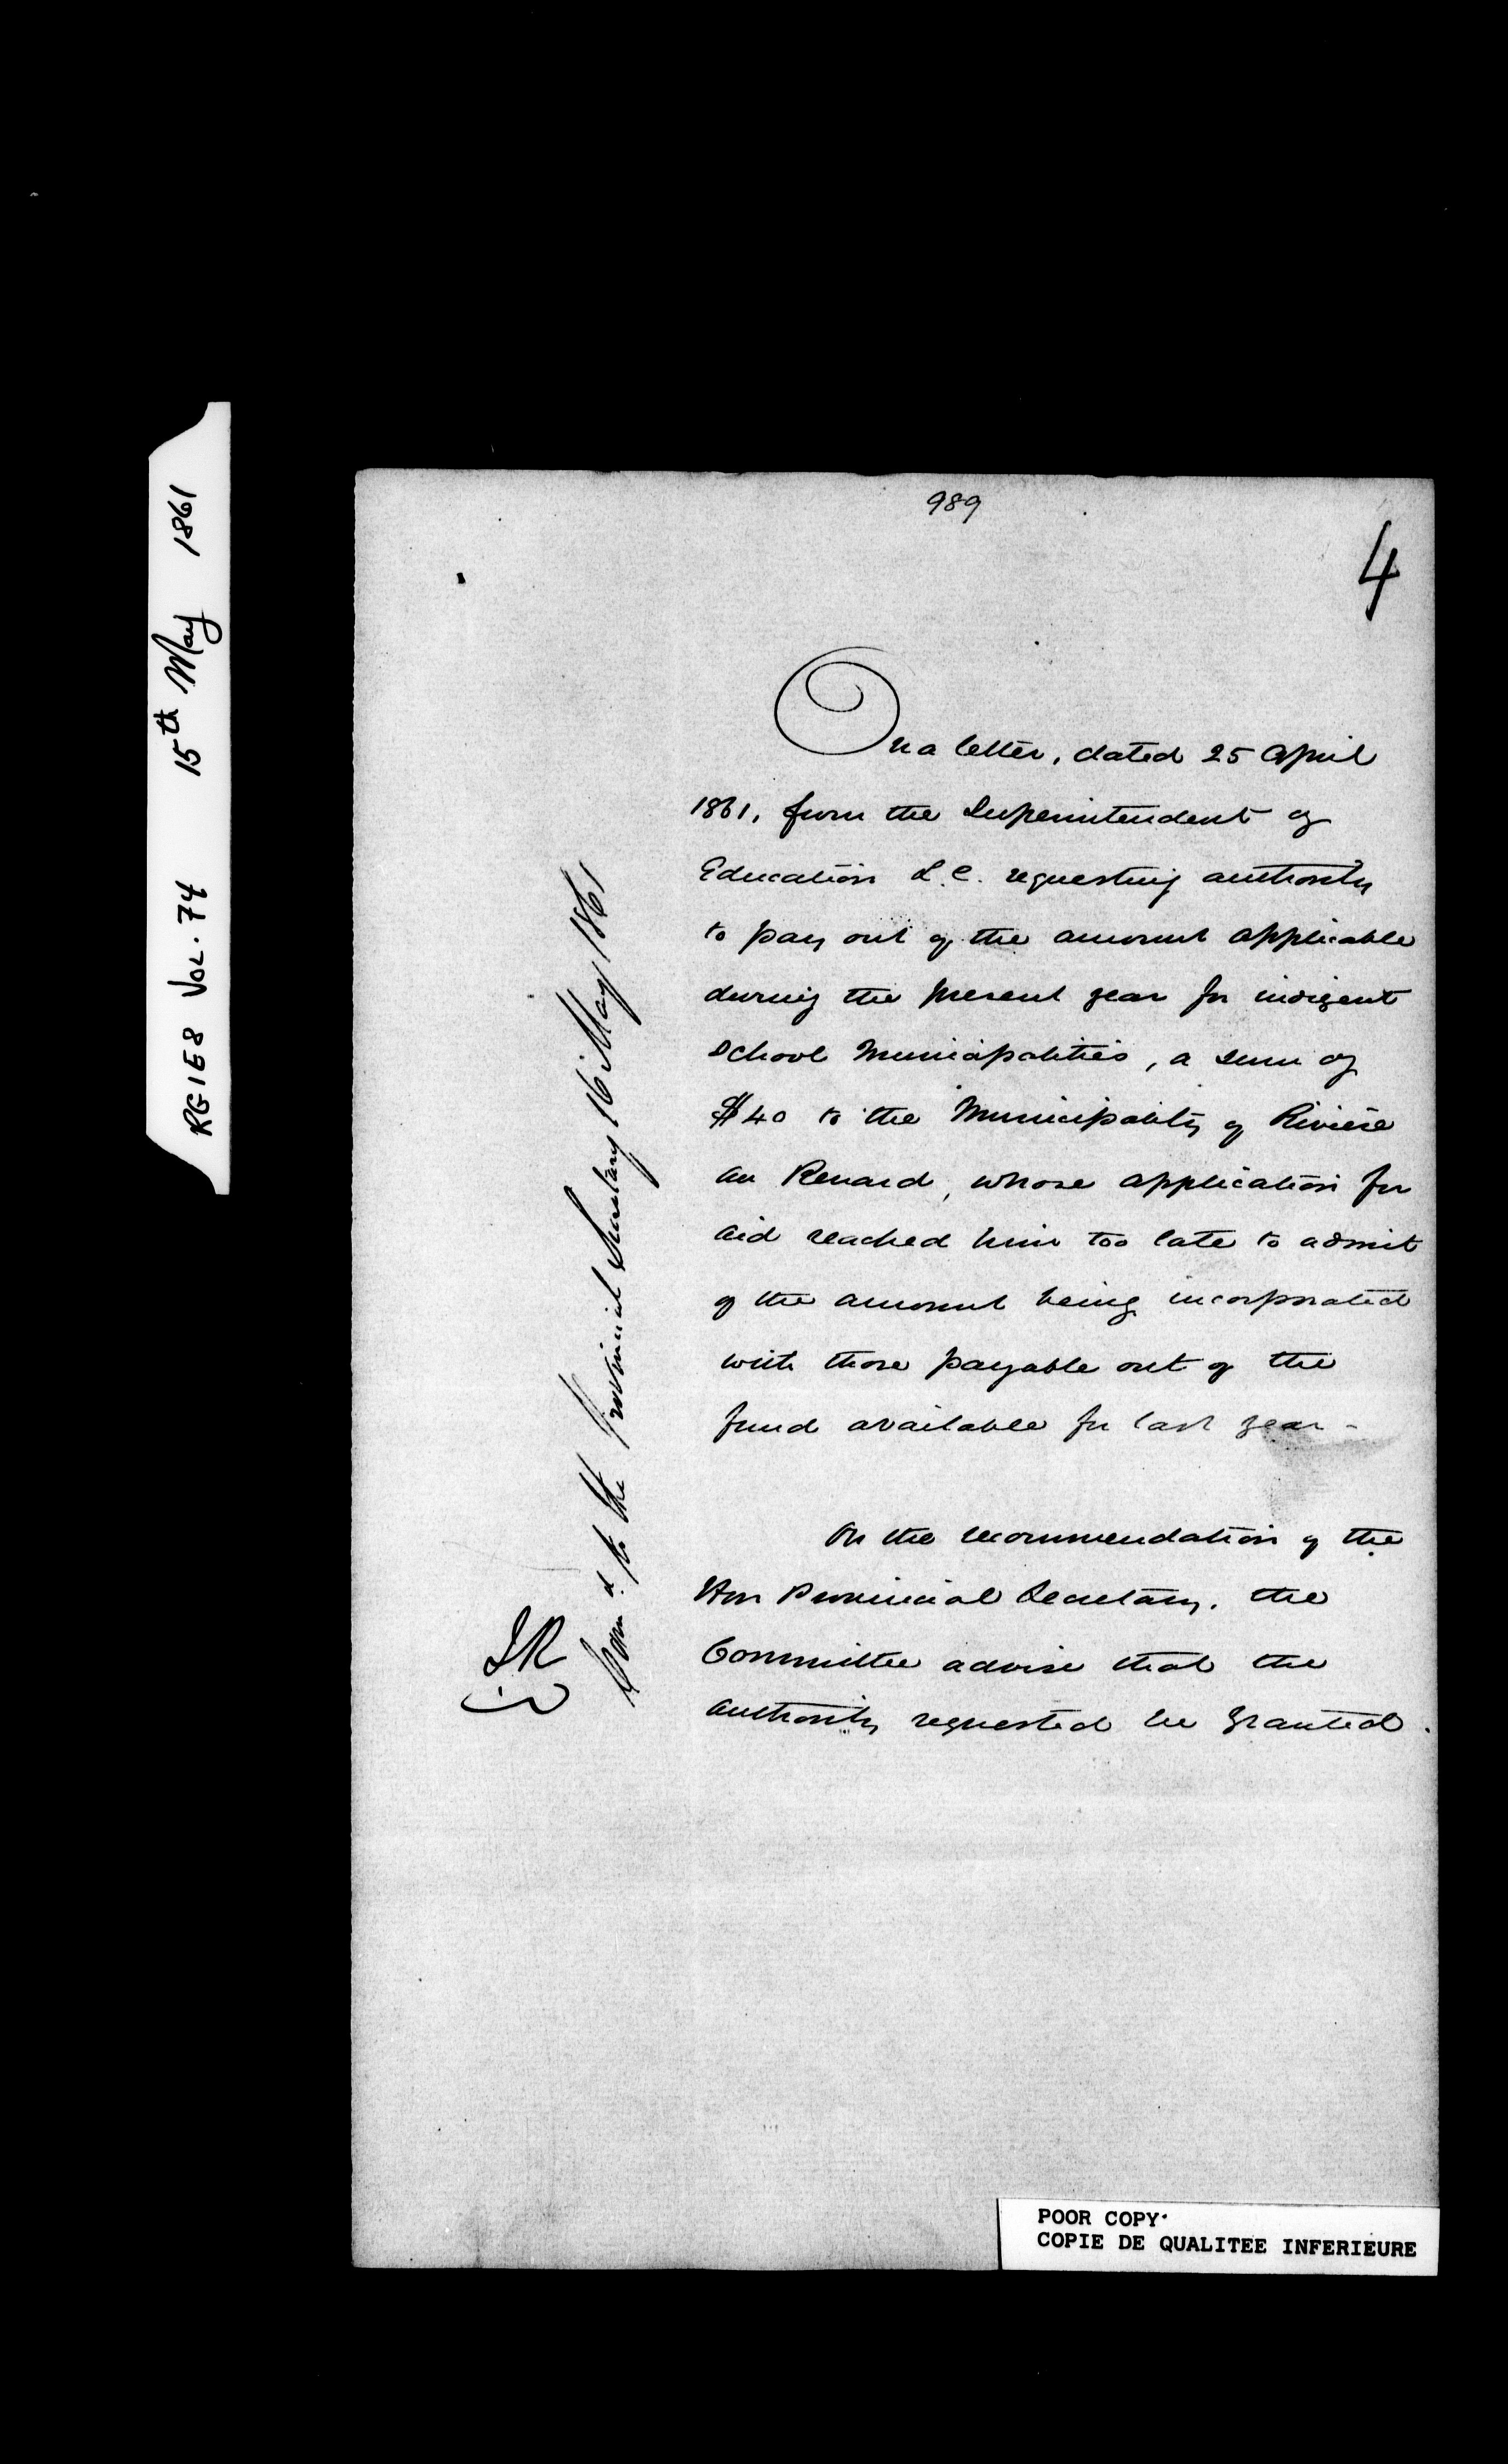 RG1E8 VOL. 74 15th May 1861
989
4
On a letter, dated 25 April
1861, from the Superintendent of
Education L.C. requesting authority
to pay out of the amount applicable
during the present year for indigent
School Municipalities, a sum of
$40 to the Municipality of Rivière
au Renard, whose application for
aid reached him too late to admit
of the amount being incorporated
with those payable out of the
fund available for last year -
On the recommendation of the
Hon Provincial Secretary, the
Committee advise that the
authority requested be granted.
Comd. to the Provincial Secretary 16 May 1861
POOR COPY
COPIE DE QUALITEE INFERIEURE